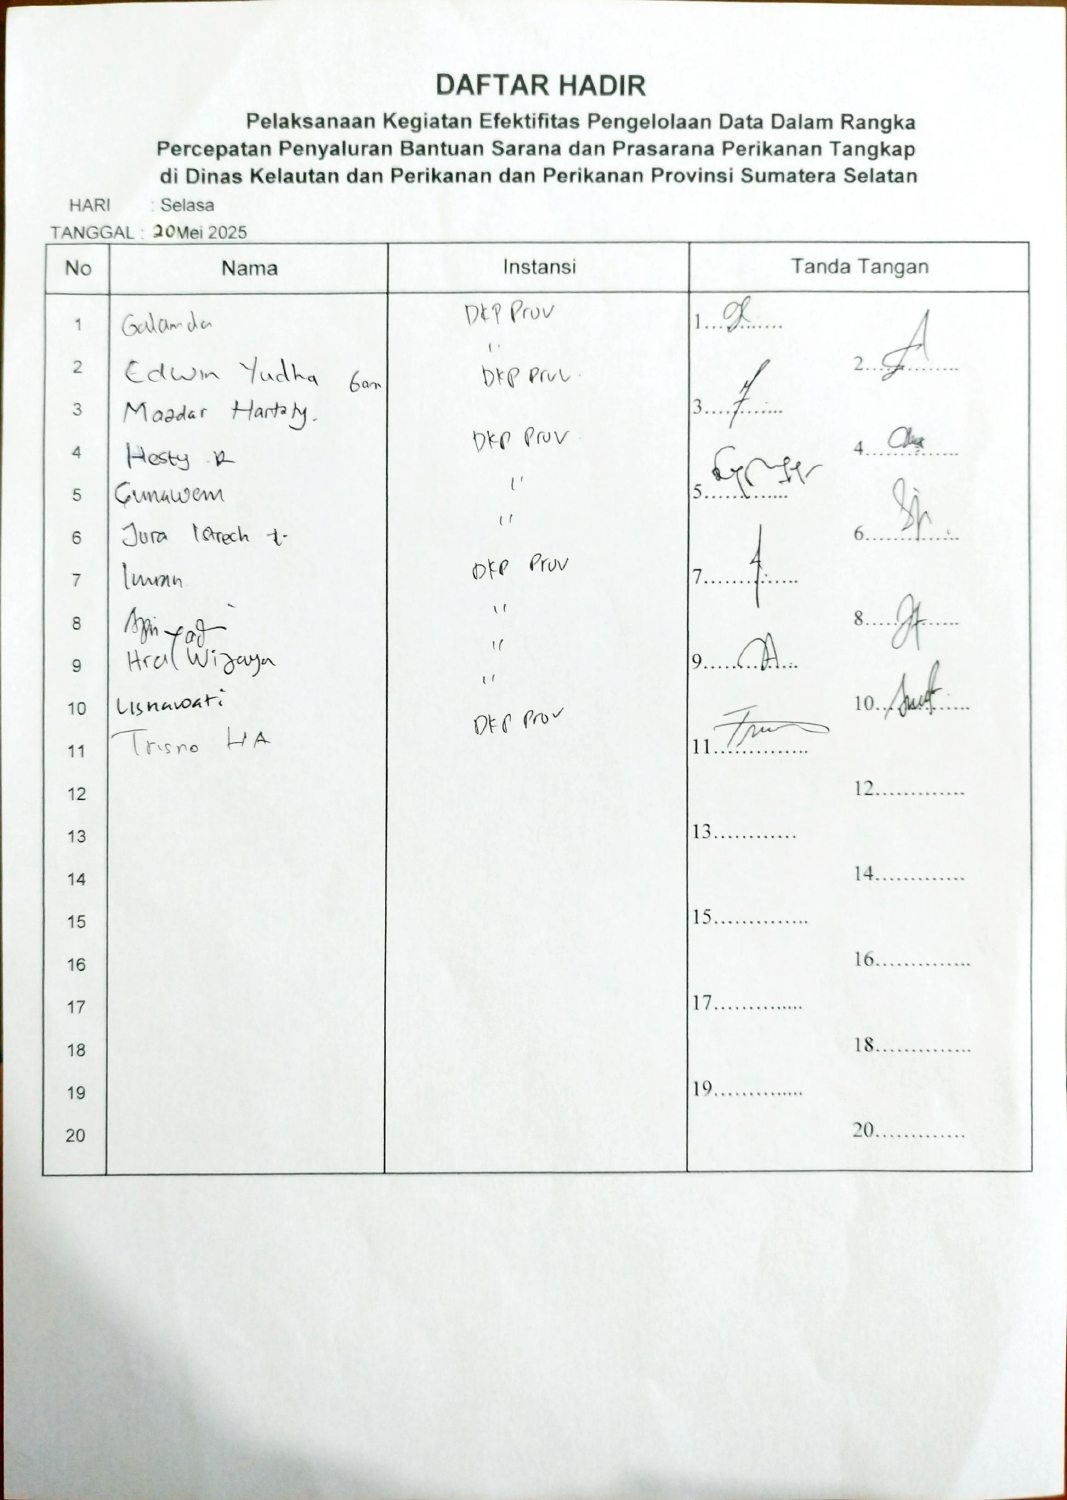 DAFTAR HADIR
Pelaksanaan Kegiatan Efektifitas Pengelolaan Data Dalam Rangka
Percepatan Penyaluran Bantuan Sarana dan Prasarana Perikanan Tangkap
di Dinas Kelautan dan Perikanan dan Perikanan Provinsi Sumatera Selatan
HARI : Selasa
TANGGAL : 20 Mei 2025
No Nama Instansi Tanda Tangan
1 Galanda DKP Prov 1............
2 Edwin Yudha " 2............
3 Hartaty. DKP Prov. 3............
4 Hesty R DKP Prov 4............
5 Gunawan " 5............
6 Jura " 6............
7 Imran DKP Prov 7............
8 " 8............
9 Wijaya " 9............
10 Lisnawati " 10............
11 Trisno HA DKP Prov 11............
12 12............
13 13............
14 14............
15 15............
16 16............
17 17............
18 18............
19 19............
20 20............